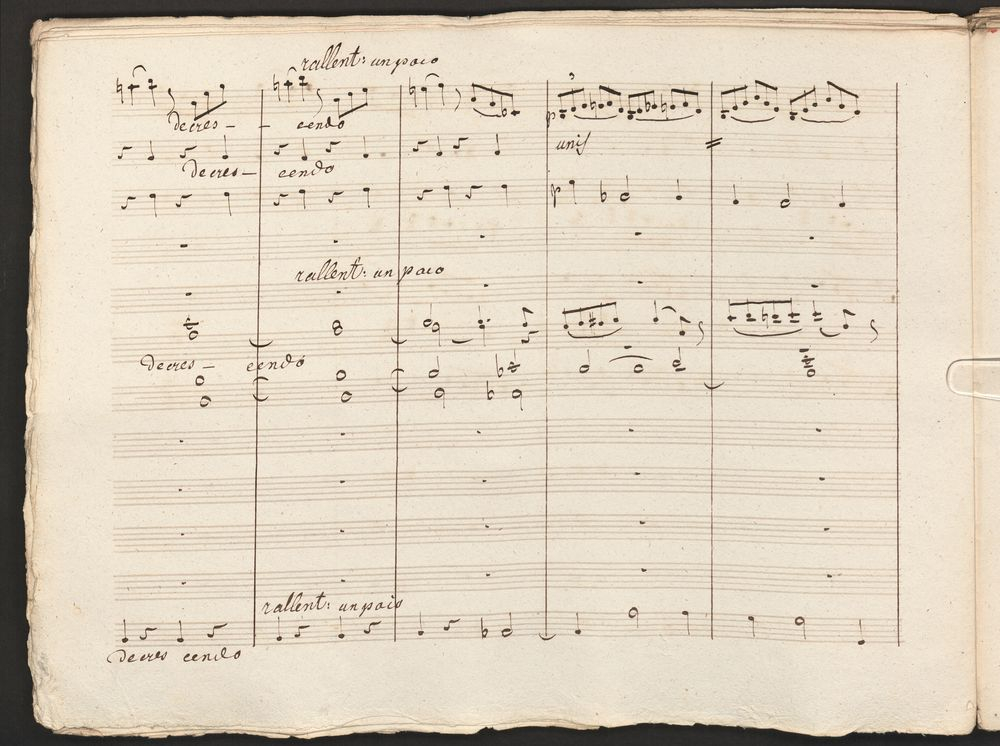 rallent: un poco
3
decres - - cendo
p
unis
decres - cendo
p
rallent: un poco
decres - cendo
rallent: un poco
decres cendo